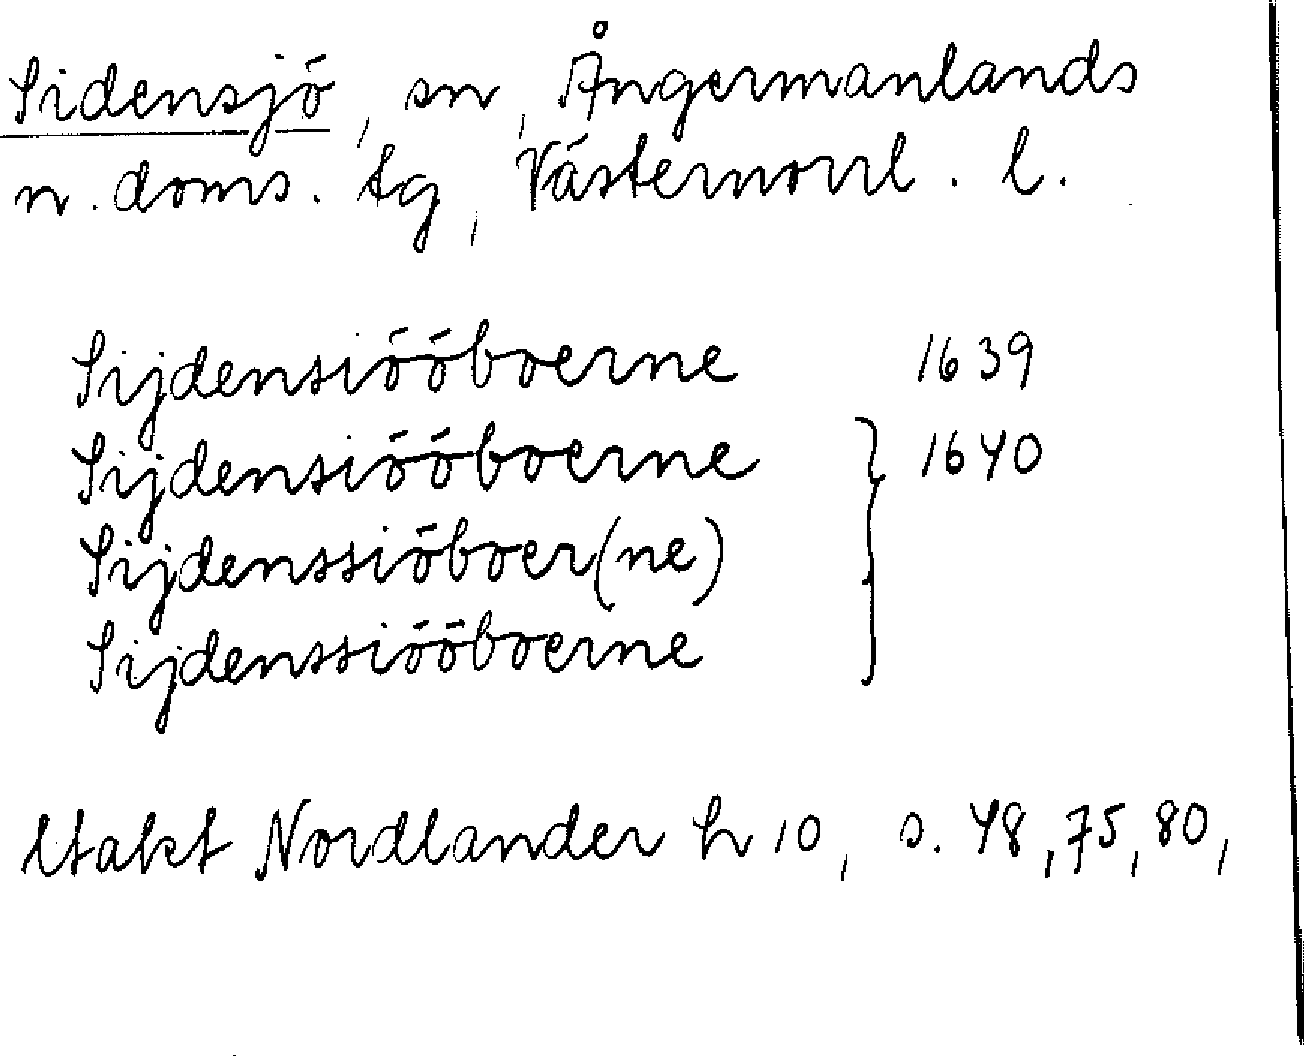 Sidensjö, sn, Ångermanlands
n. doms. tg, Västernorrl. l.
Sijdensiööboerne 1639
Sijdensiööboerne } 1640
Sijdenssiöboer(ne)
Sijdenssiööboerne
Utakt Nordlander h 10, s. 48, 75, 80,